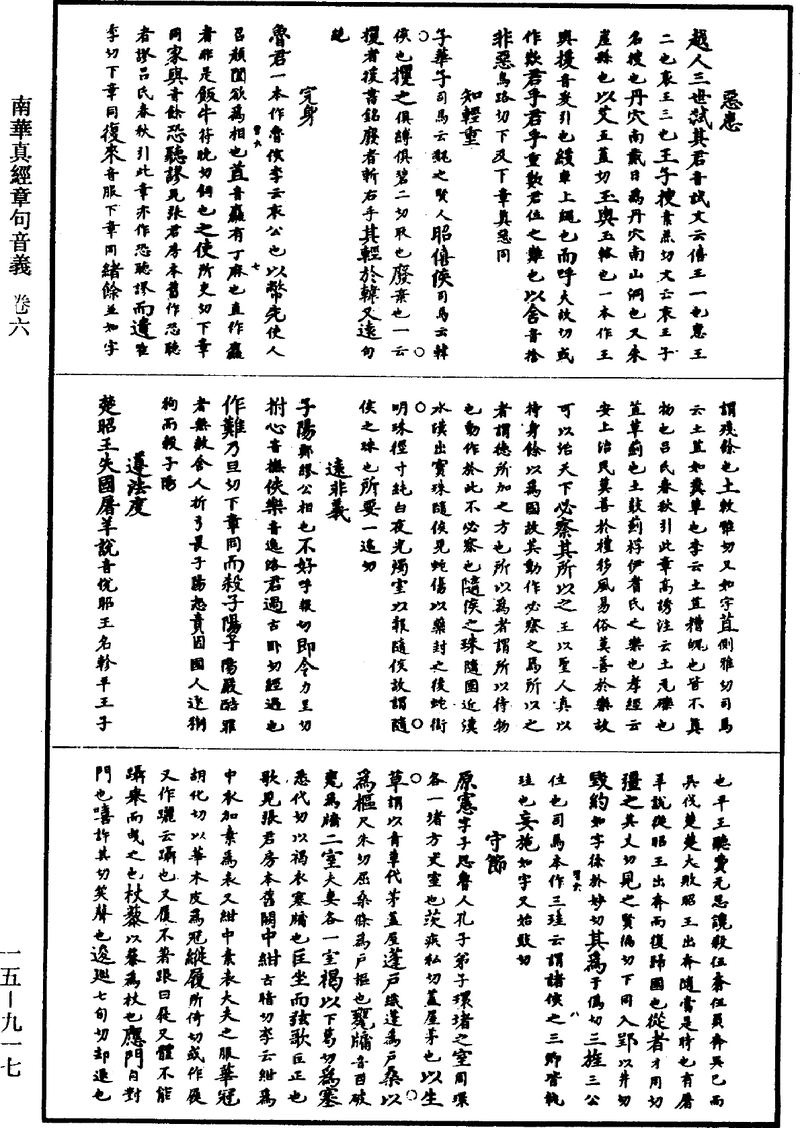 南華真經章句音義 卷六
惡患
越人三世弒其君音試文云僖王一也惠王
二也哀王三也王子搜素羔切文云哀王子
名搜也丹穴南戴日為丹穴南山洞也又朱
崖縣也以艾五蓋切王輿玉輅也一本作王
輿援音爰引也綏車上繩也而呼火故切或
作歎君乎君乎重歎君位之難也以舍音捨
非惡烏路切下及下章真惡同
知輕重
子華子司馬云魏之賢人昭僖侯司馬云韓
侯也攫之俱縛俱碧二切取也廢棄也一云
攫者援書銘廢者斬右手其輕於韓又遠句
絕
完身
魯君一本作魯侯李云哀公也以幣先使人
召顏闔欲為相也苴音麤有子麻也直作麤
者非是飯牛符晚切飼也之使所吏切下章
同家與音餘恐聽謬見張君房本舊作恐聽
者謬呂氏春秋引此章亦作恐聽謬而遺唯
季切下章同復來音服下章同緒餘並如字
謂殘餘也土敕雅切又如字苴側雅切司馬
云土苴如糞草也李云土苴糟魄也皆不真
物也呂氏春秋引此章高誘注云土瓦礫也
苴草薊也土鼓蒯桴伊耆氏之樂也孝經云
安上治民莫善於禮移風易俗莫善於樂故
可以治天下必察其所以之王以聖人真以
持身餘以為國故其動作必察之為所以之
者謂德所加之方也所以為者謂所以待物
也動作於此不必察也隨侯之珠隨國近濮
水濮出寶珠隨侯見蛇傷以藥封之後蛇銜
明珠徑寸純白夜光燭室以報隨侯故謂隨
侯之珠也所要一遙切
遠非義
子陽鄭繆公相也不好呼報切即令力呈切
拊心音撫佚樂音逸洛君過古臥切經過也
作難乃旦切下章同而殺子陽子陽嚴酷罪
者無赦舍人折弓畏子陽怒責因國人逐猘
狗而殺子陽
遵法度
楚昭王失國屠羊說音悅昭王名軫平王子
也平王聽費无忌讒殺伍奢伍員奔吳已而
吳伐楚楚大敗昭王出奔隨當是時也有屠
羊說從昭王出奔而復歸國也從者才用切
彊之其丈切見之賢徧切下同入郢以井切
毀約如字徐於妙切其為于偽切三旌三公
位也司馬本作三珪云謂諸侯之三卿皆執
珪也妄施如字又始豉切
守節
原憲字子思魯人孔子弟子環堵之室周環
各一堵方丈室也茨疾私切蓋屋茅也以生
草謂以青草代茅蓋屋蓬戶織蓬為戶桑以
為樞尺朱切屈桑條為戶樞也甕牖音酉破
甕為牖二室夫妻各一室褐以下葛切為塞
悉代切以褐衣塞牖也匡坐而弦歌匡正也
歌見張君房本舊闕中紺古暗切李云紺為
中衣加素為表又紺中素表大夫之服華冠
胡化切以華木皮為冠縰履所倚切或作屣
又作驪云躡也又履不著跟曰屣又體不能
躡舉而曳之也杖藜以藜為杖也應門自對
門也嘻許其切笑聲也逡巡七旬切卻退也
一五—九一七